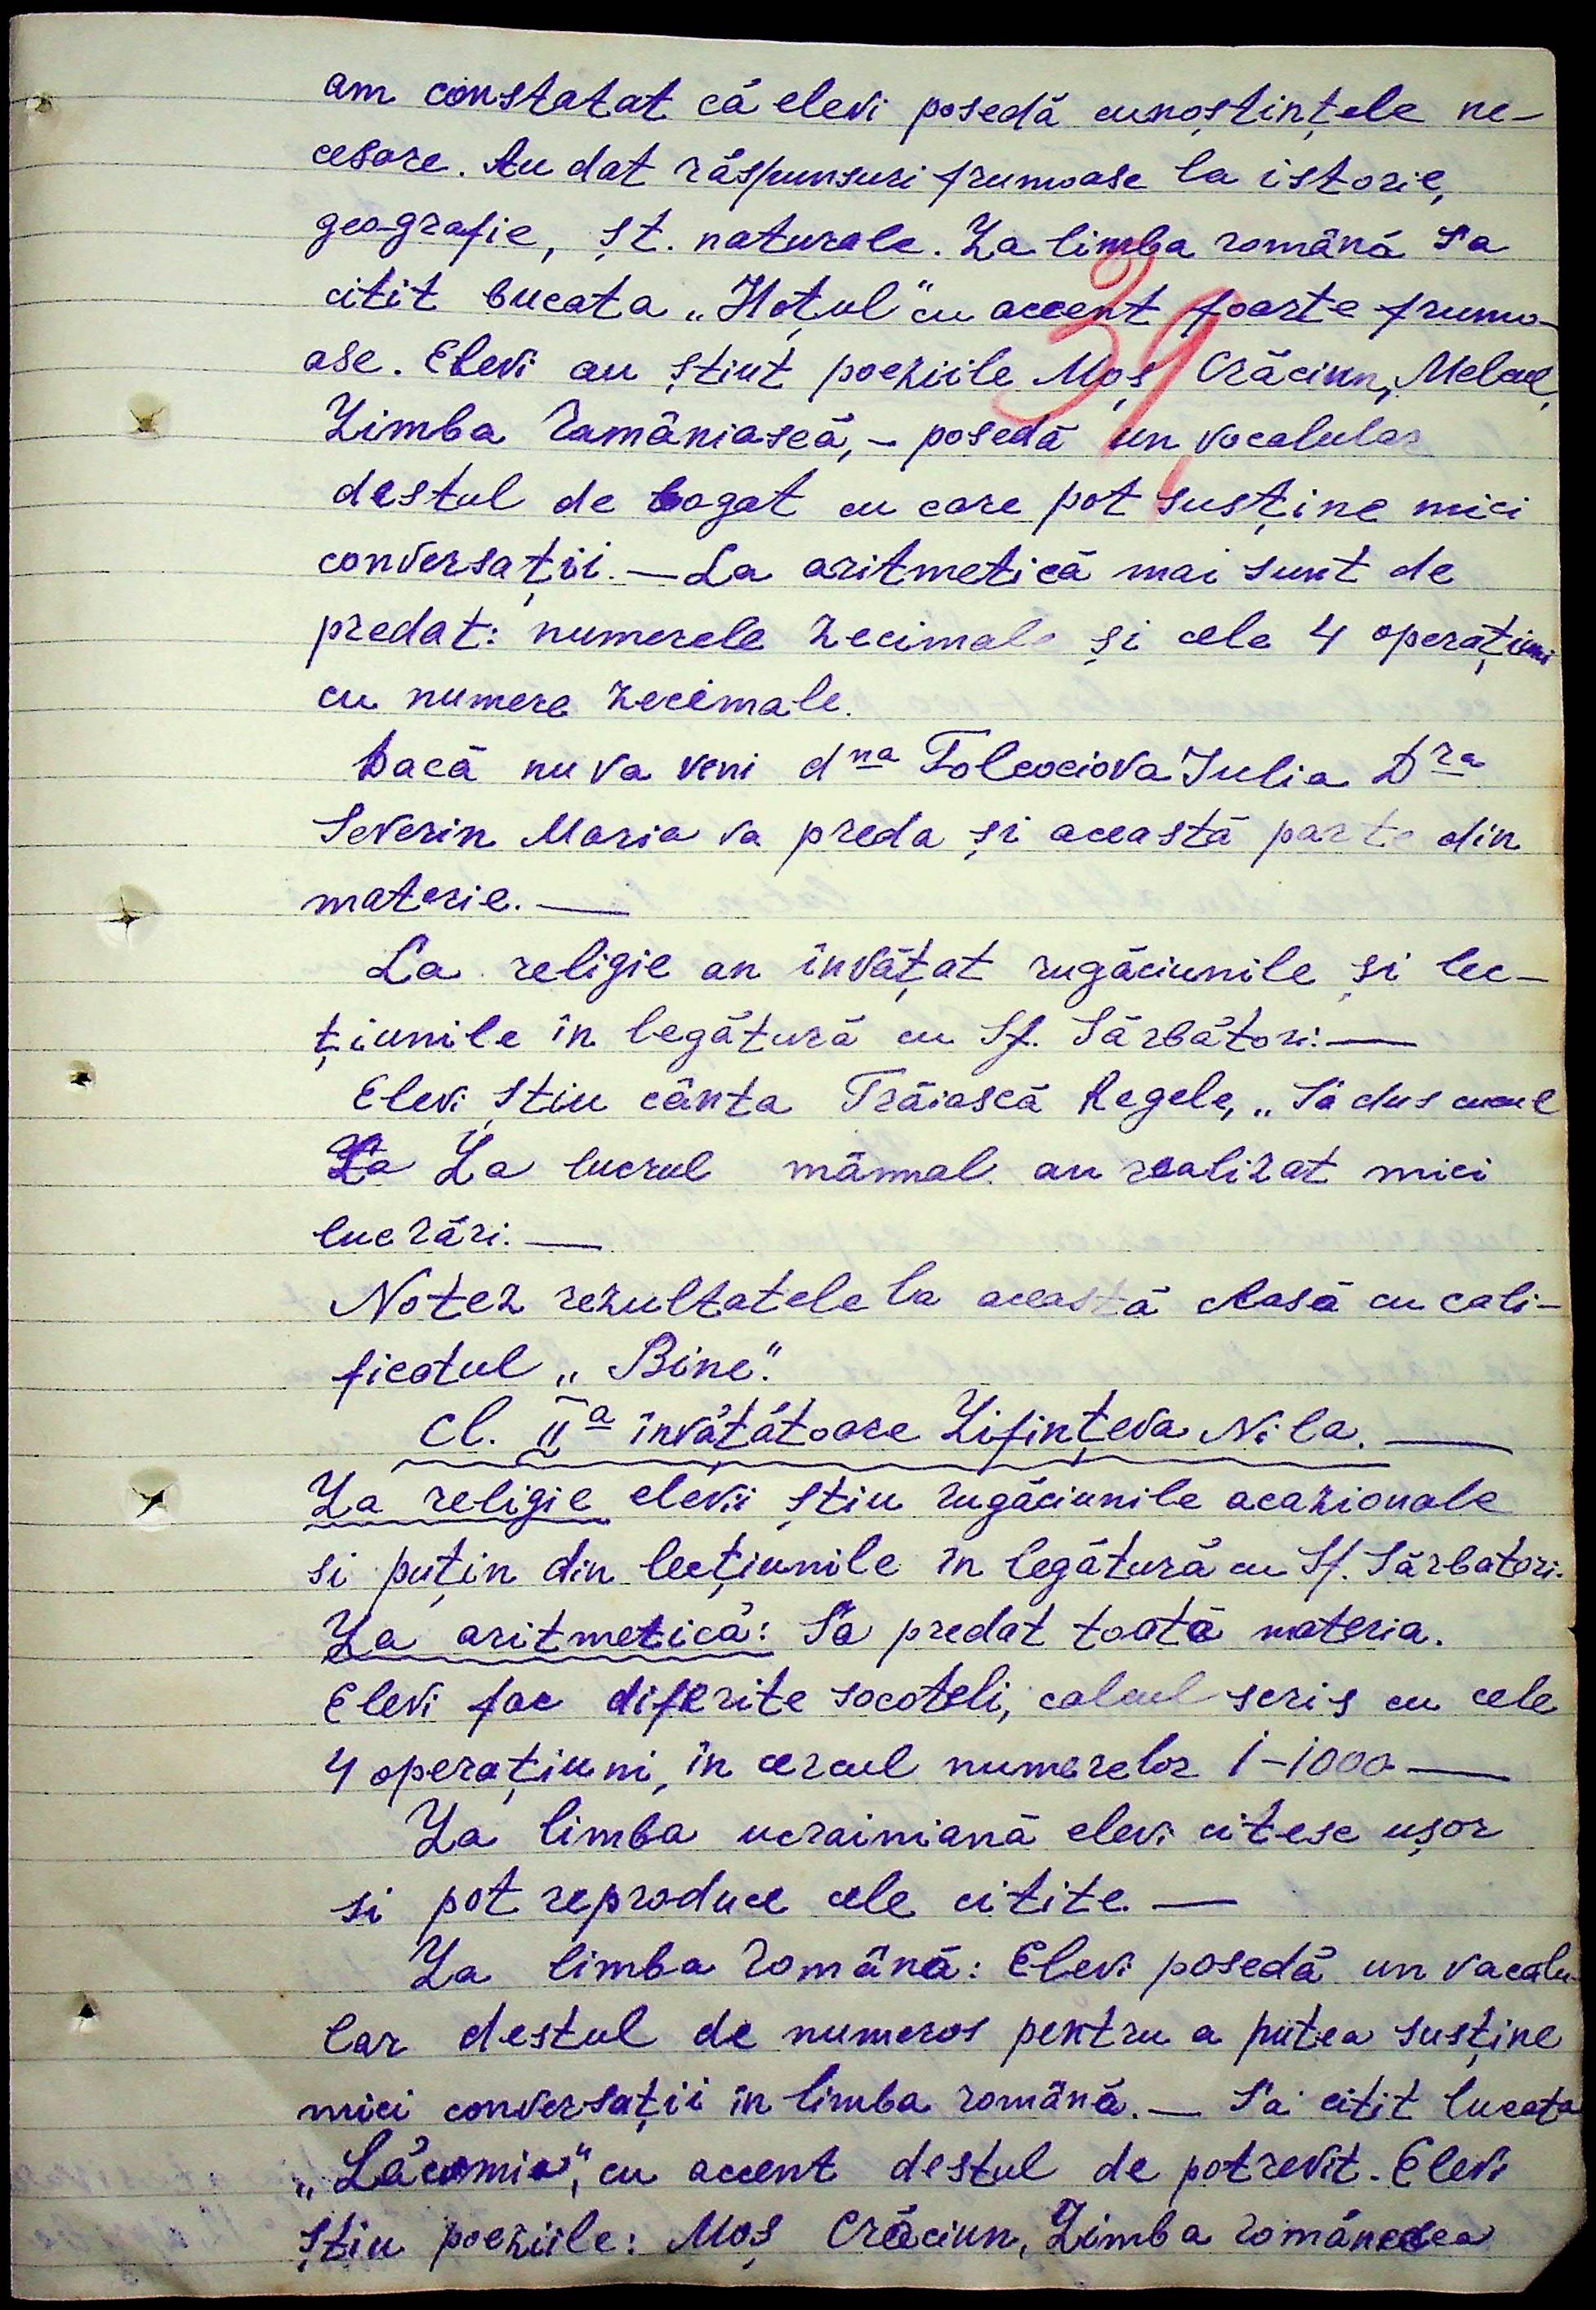 am constatat că elevi posedă cunoștințele ne-
cesare. Au dat răspunsuri frumoase la istorie,
geografie, șt. naturale. La limba română s'a
citit bucata „Hoțul" cu accent foarte frumo-
ase. Elevi au știut poeziile Moș Crăciun, Melcul,
Limba Româniască, – posedă un vocalular
destul de bogat cu care pot susține mici
conversații. — La aritmetică mai sunt de
predat: numerele zecimale și cele 4 operațiuni
cu numere zecimale.
Dacă nu va veni dna Tolcociova Iulia Dra
Severin Maria va preda și această parte din
materie. —
La religie au învățat rugăciunile și lec-
țiunile în legătură cu Sf. Sărbători. —
Elevi știu cânta Trăiască Regele, „Sa dus cucul
La La lucrul mânual au realizat mici
lucrări. —
Notez rezultatele la această clasă cu cali-
ficatul „Bine".
Cl. IIa învățătoare Lifințeva Nila. —
La religie elevii știu rugăciunile acazionale
si puțin din lecțiunile în legătură cu Sf. Sărbatori.
La aritmetică: S'a predat toată materia.
Elevi fac diferite socoteli, calcul scris cu cele
4 operațiuni, în cercul numerelor 1-1000 —
La limba ucrainiană elevi citesc ușor
si pot reproduce cele citite. —
La limba română: Elevi posedă un vacalu-
lar destul de numeros pentru a putea susține
mici conversații în limba română. — S'a citit bucata
„Lăcomia", cu accent destul de potrevit. Elevi
știu poeziile: Moș Crăciun, Limba românescea
39